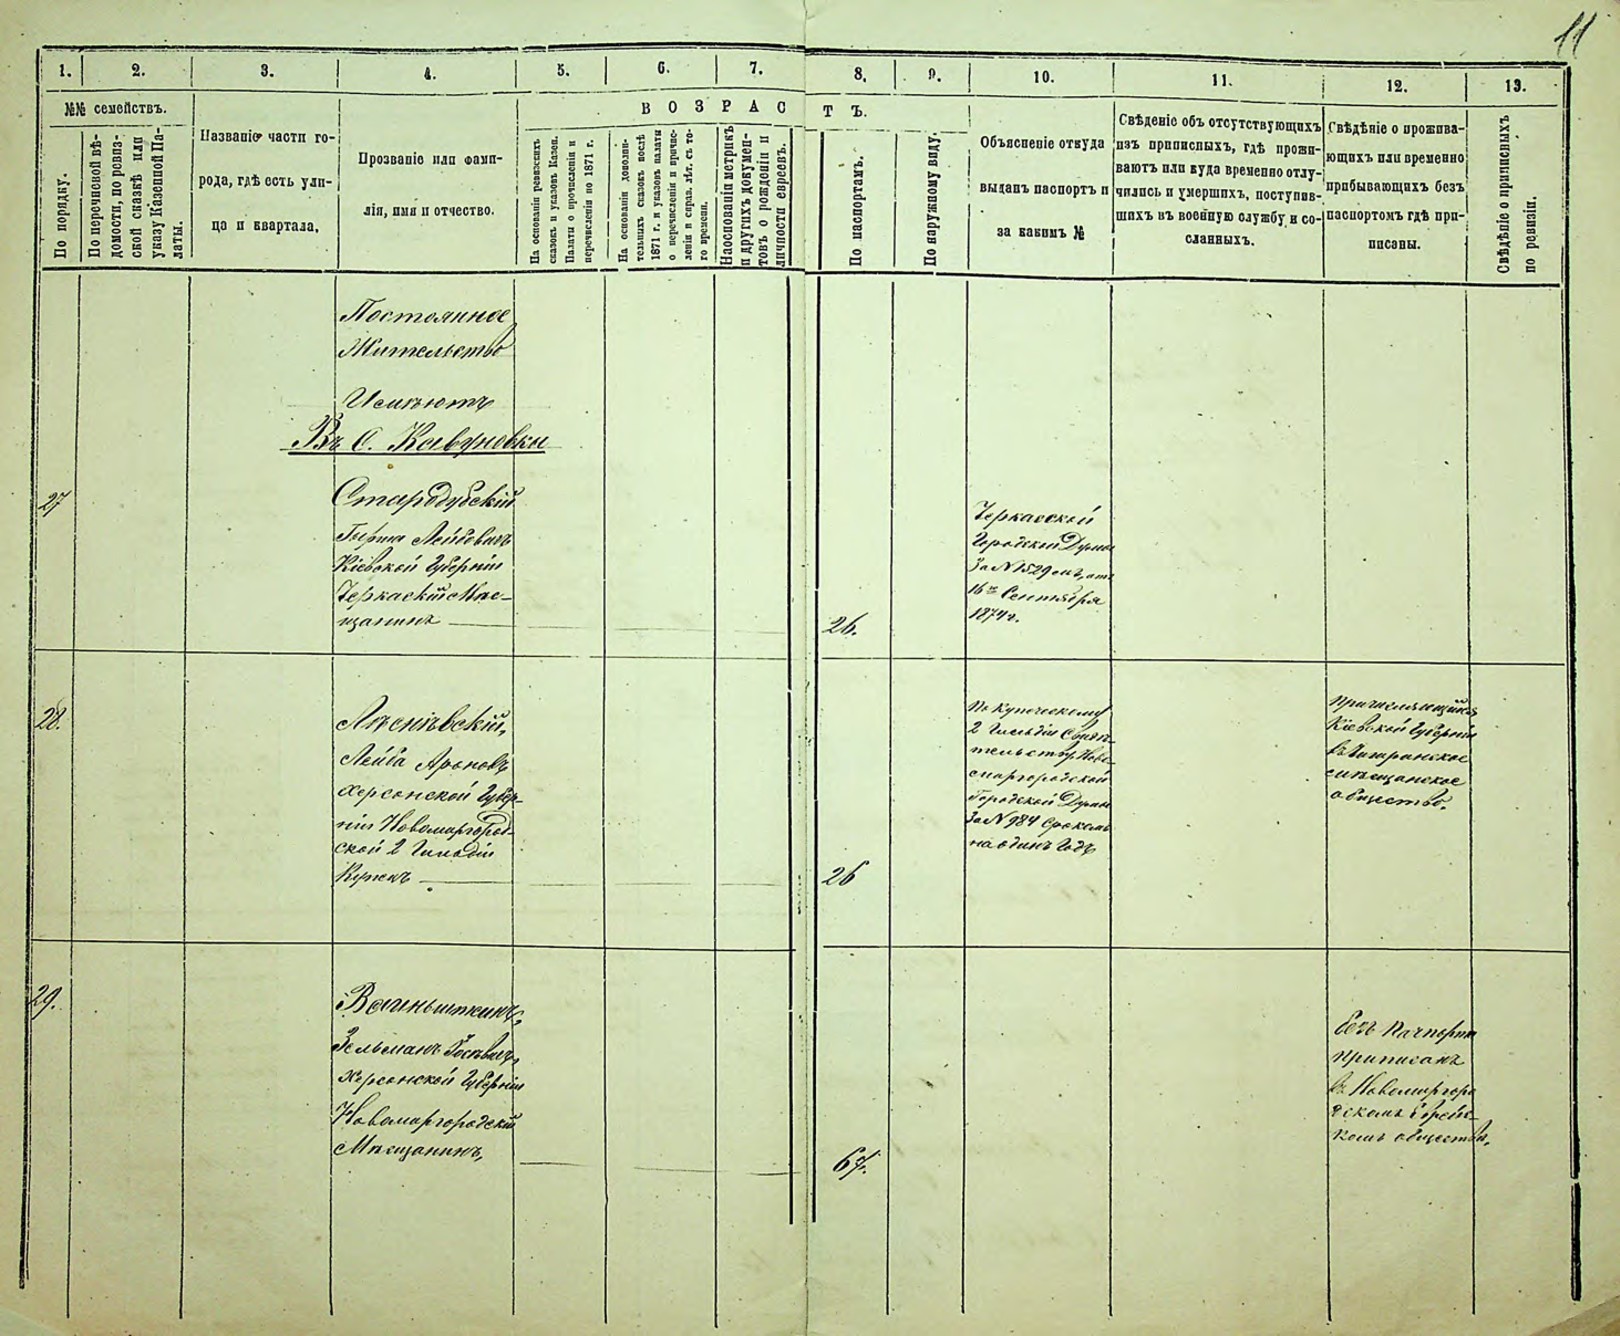 11
1.
2.
3.
4.
5.
6.
7.
8.
9.
10.
11.
12.
13.
№№ семействъ.
По порядку.
По перечневой вѣ-
домости, по ревиз-
ской сказкѣ или
указу Казенной Па-
латы.
Названіе части го-
рода, гдѣ есть ули-
ца и квартала.
Прозваніе или фами-
лія, имя и отчество.
ВОЗРАСТЪ.
На основаніи ревизскихъ
сказокъ и указовъ Казен.
Палаты о причисленіи и
перечисленіи по 1871 г.
На основаніи дополни-
тельныхъ сказокъ послѣ
1871 г. и указовъ палаты
о перечисленіи и причис-
леніи и справ. лѣт. съ то-
го времени.
На основаніи метрикъ
и другихъ докумен-
товъ о рожденіи и
личности евреевъ.
По паспортамъ.
По наружному виду.
Объясненіе откуда
выданъ паспортъ и
за какимъ №
Свѣденіе объ отсутствующихъ
изъ приписныхъ, гдѣ прожи-
ваютъ или куда временно отлу-
чились и умершихъ, поступив-
шихъ въ военную службу и со-
сланныхъ.
Свѣдѣніе о прожива-
ющихъ или временно
прибывающихъ безъ
паспортомъ гдѣ при-
писаны.
Свѣдѣніе о приписныхъ
по ревизіи.
Постоянное
Жительство
Имѣютъ
Въ С. Кавуновки
27
Стародубскій
Лейбовичъ
Кіевской Губерніи
Черкаскій Мѣс-
щанинъ
26.
Черкасской
Городской Думы
За № 1529 омъ, отъ
16го Сентября
1874 г.
28.
Лейба Ароновъ
Херсонской Губер-
ніи Новомиргород-
ской 2 Гильдіи
Купецъ
26
По Купеческому
2 Гильдіи Свидѣ-
тельству, Ново-
миргородской
Городской Думы
За № 984 Срокомъ
на одинъ Годъ
Кіевской Губерніи
мѣщанское
общество.
29.
Зельманъ
Херсонской Губерніи
Новомиргородскій
Мѣщанинъ,
67.
Безъ Пачпорта
приписанъ
въ Новомиргоро
дскомъ Еврейс-
комъ обществѣ,